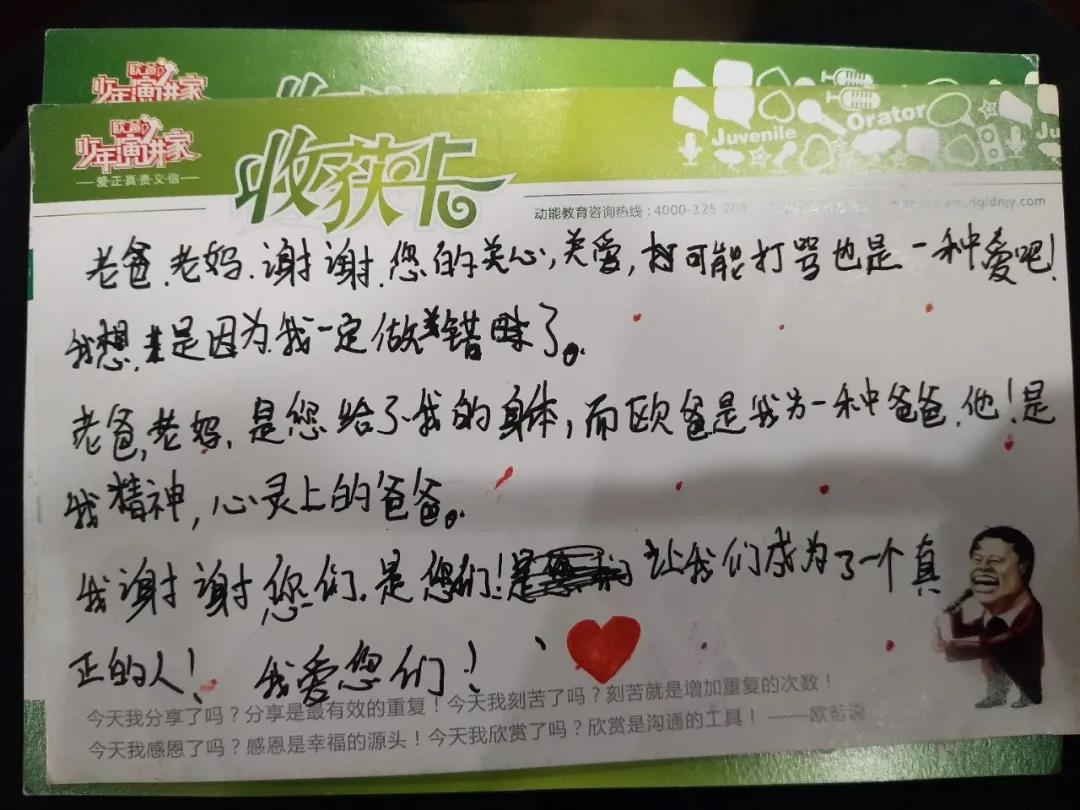 少年演讲家
欧爸
少年演讲家
爱·正·真·责·义·信
收获卡
Juvenile
Orator
Ju
动能教育咨询热线：4000-125-
老爸.老妈.谢谢.您的关心,关爱,可能打骂也是一种爱吧!
我想.是因为我一定做错了。
老爸,老妈.是您给了我的身体,而欧爸是我另一种爸爸.他!是
我精神,心灵上的爸爸。
我谢谢您们.是您们!让我们成为了一个真
正的人! 我爱您们!
今天我分享了吗？分享是最有效的重复！今天我刻苦了吗？刻苦就是增加重复的次数！
今天我感恩了吗？感恩是幸福的源头！今天我欣赏了吗？欣赏是沟通的工具！ ——欧爸说